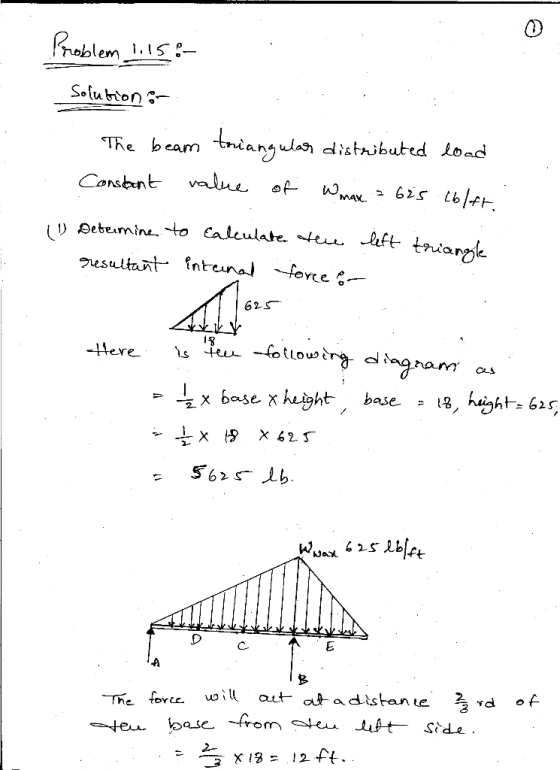 ①
Problem 1.15 :-
Solution :-
The beam triangular distributed load
Constant value of Wmax = 625 lb/ft.
(1) Determine to calculate the left triangle
resultant internal force :-
625
18
Here is the following diagram as
= 1/2 x base x height, base = 18, height = 625,
= 1/2 x 18 x 625
= 5625 lb.
Wmax 625 lb/ft
D C E
A
B
The force will act at a distance 2/3 rd of
the base from the left side.
= 2/3 x 18 = 12 ft..